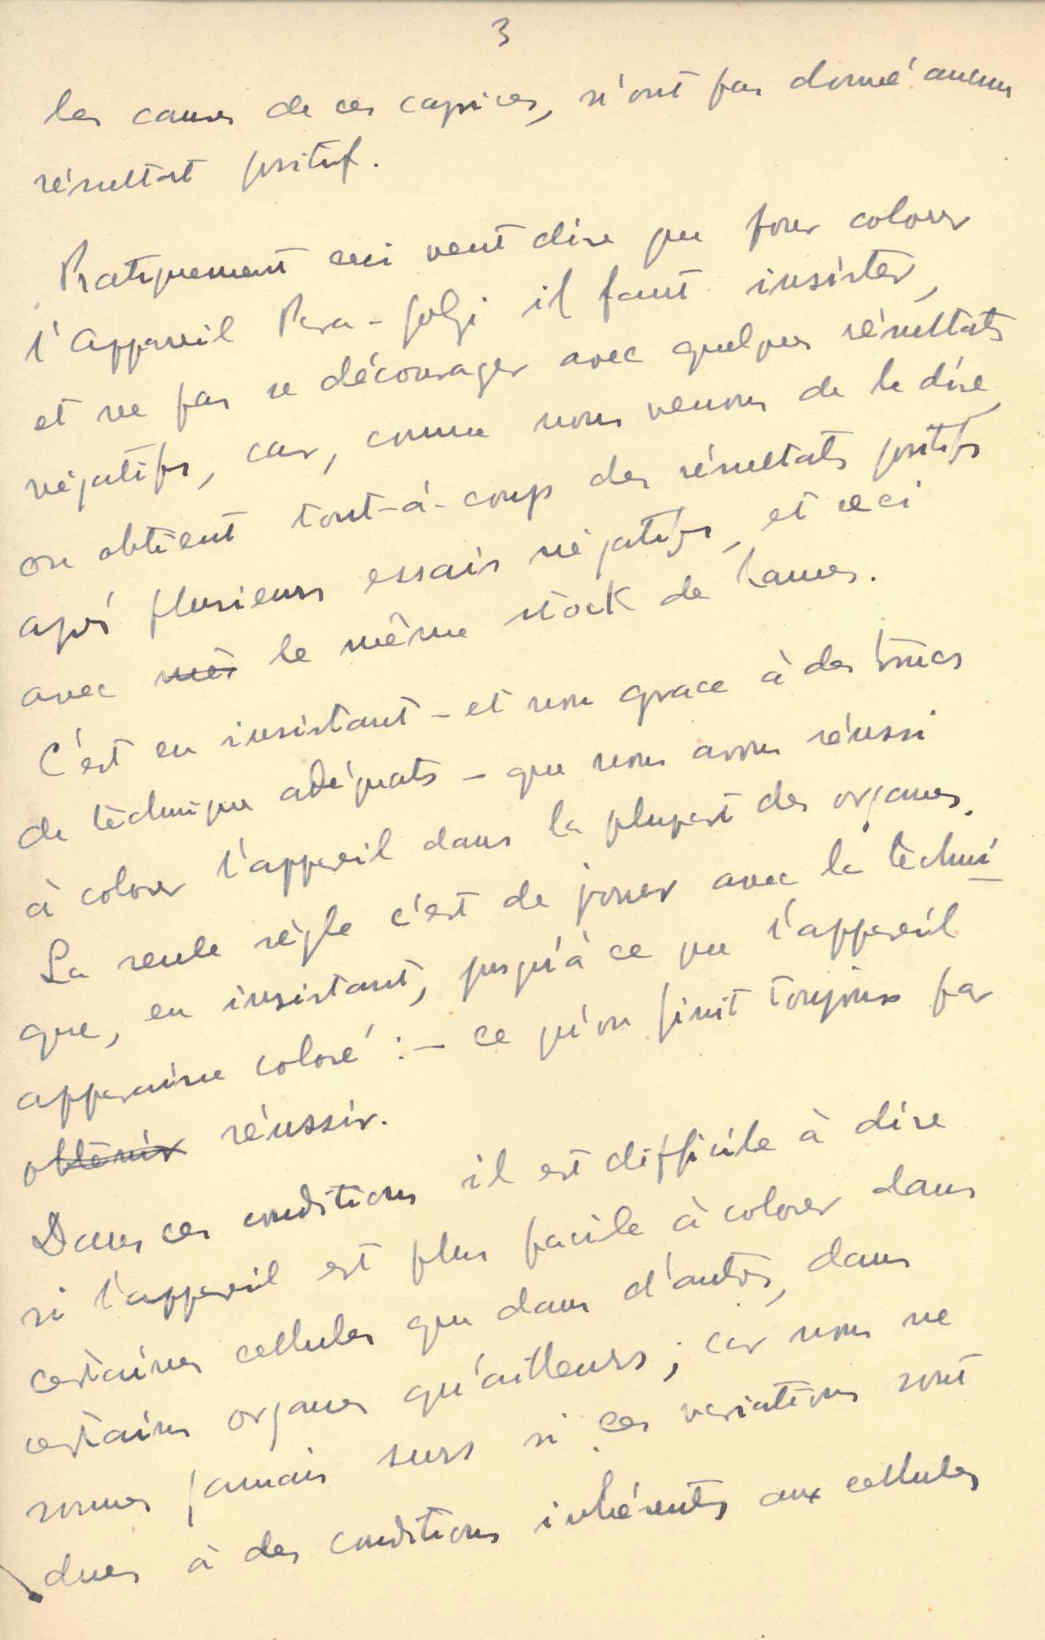 3
les causes de ces caprices, n'ont pas donné aucun
résultat positif.
Pratiquement ceci veut dire que pour colorer
l'Appareil Para-Golgi il faut insister,
et ne pas se décourager avec quelques résultats
négatifs, car, comme nous venons de le dire,
on obtient tout-à-coup des résultats positifs
après plusieurs essais négatifs, et ceci
avec mês le même stock de lames.
C'est en insistant - et non grace à des trucs
de téchnique adéquats - que nous avons réussi
à colorer l'appareil dans la plupart des organes.
La seule règle c'est de jouer avec la téchni
que, en insistant, jusqu'à ce que l'appareil
apparaisse coloré : - ce qu'on finit toujours par
obtenir réussir.
Dans ces conditions il est difficile à dire
si l'appareil est plus facile à colorer dans
certaines cellules que dans d'autres, dans
certains organes qu'ailleurs ; car nous ne
sommes jamais surs si ces variations sont
dues à des conditions inhérentes aux cellules